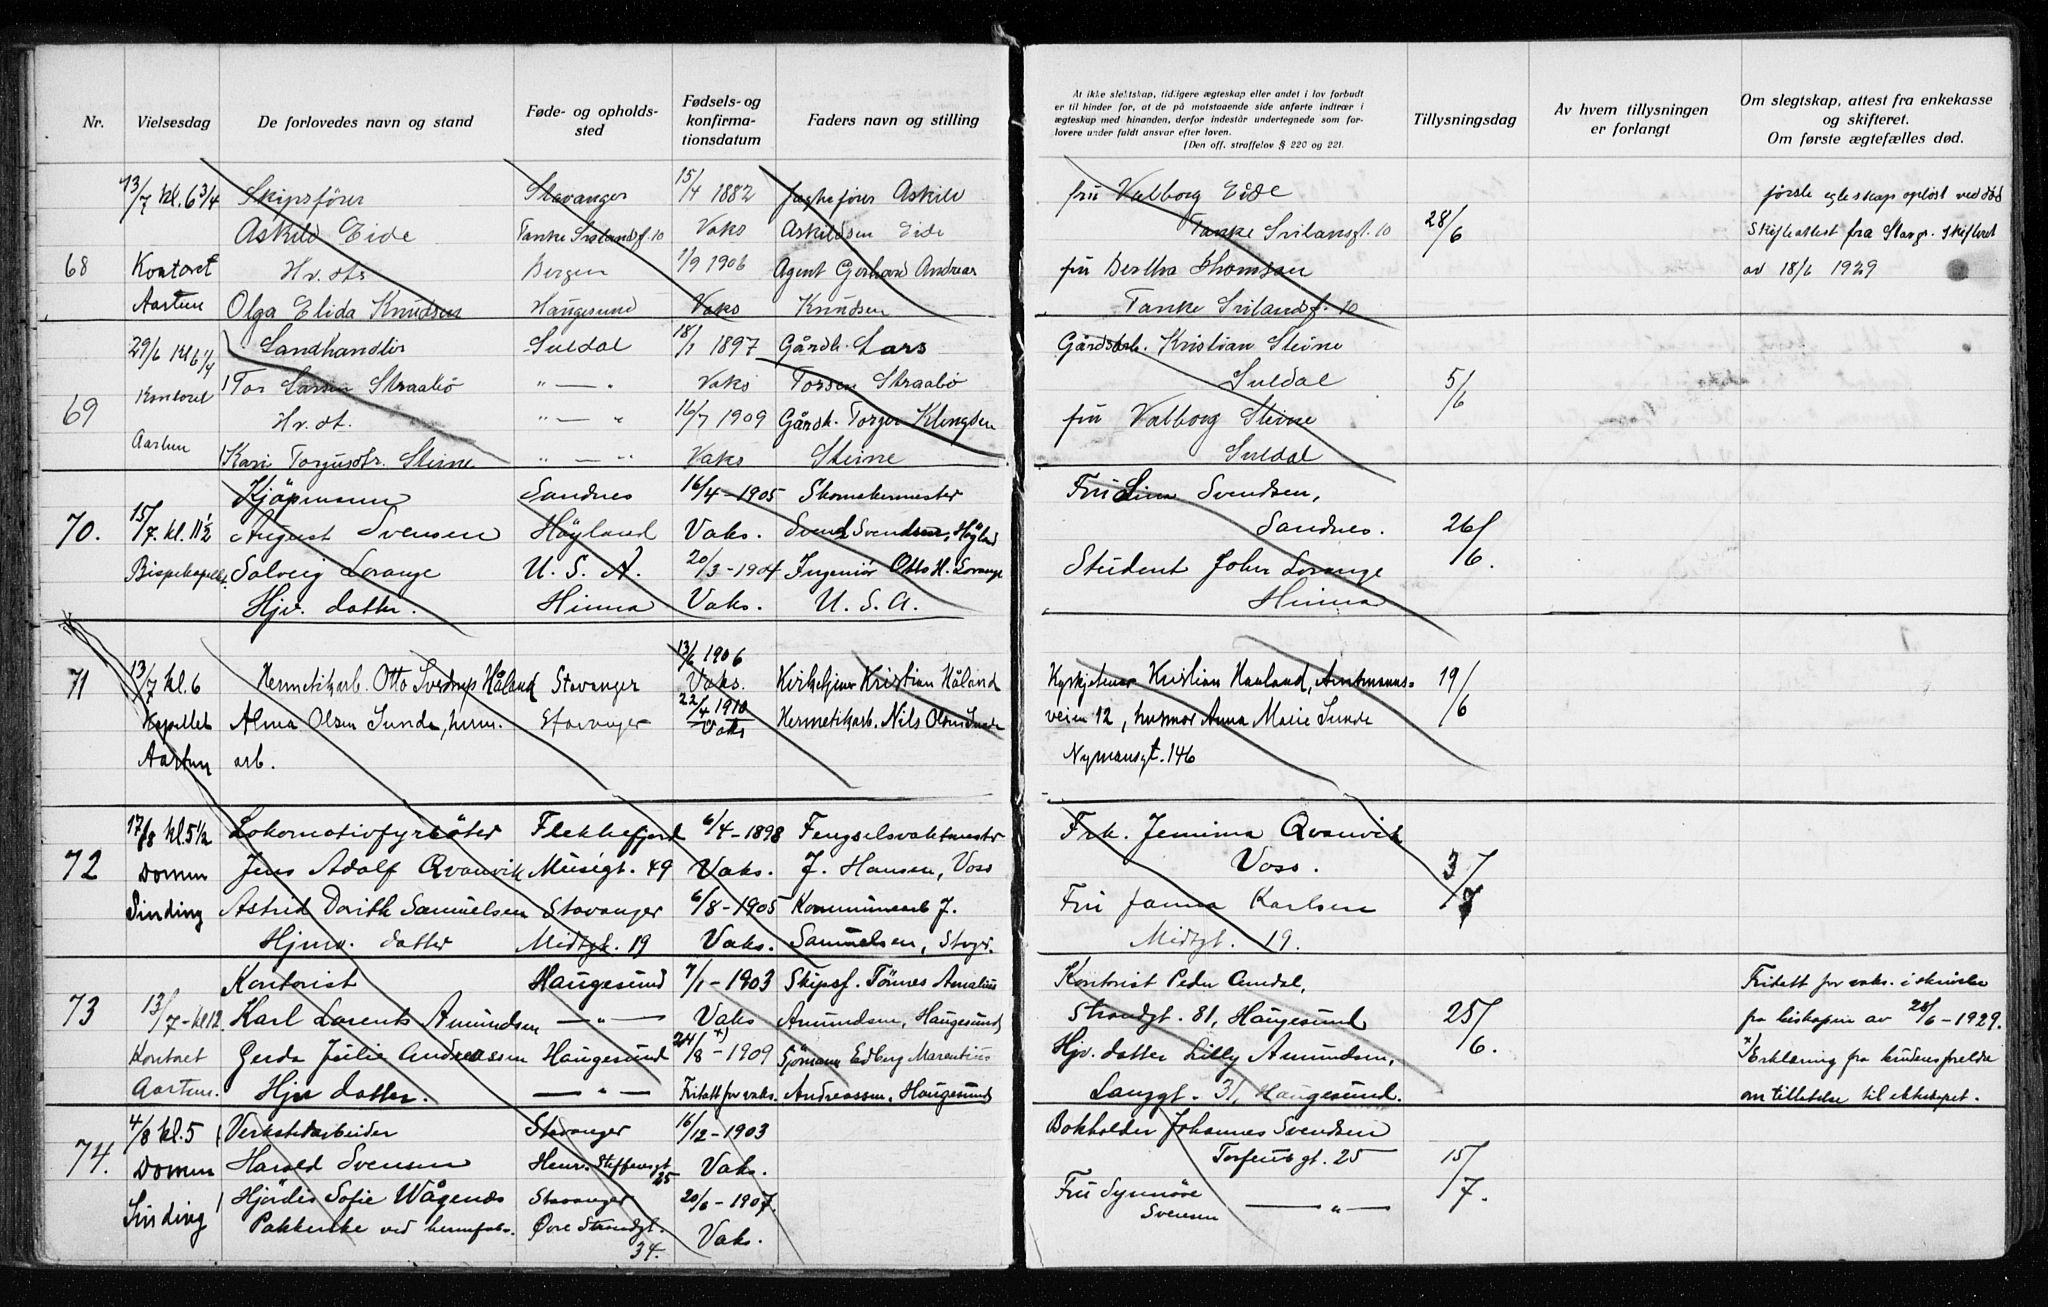 Nr.
Vielsesdag
De forlovedes navn og stand
Føde- og opholds-
sted
Fødsels- og
konfirma-
tionsdatum
Faders navn og stilling
At ikke slektskap, tidligere ægteskap eller andet i lov forbudt
er til hinder for, at de på motstaaende side anførte indtrær i
ægteskap med hinanden, derfor indestår undertegnede som for-
lovere under fuldt ansvar efter loven.
(Den off. straffelov § 220 og 221.
Tillysningsdag
Av hvem tillysningen
er forlangt
Om slegtskap, attest fra enkekasse
og skifteret.
Om første ægtefælles død.
68
13/7 kl. 6 3/4
Kontoret
Aartun
Skipsfører
Askild Eide
Hv. dt.
Olga Elida Knudsen
Stavanger
Tanke Svilandsg. 10
Bergen
Haugesund
15/4 1882
Vaks
1/9 1906
Vaks
Askild
Askildsen Eide
Agent Gerhard Andreas
Knudsen
fru Valborg Eide
Tanke Svilandsgt. 10
fru Bertha Thomsen
Tanke Svilandsg. 10
28/6
første egteskap opløst ved død
Skifteattest fra Stavgr. skifteret
av 18/6 1929
69
29/6 kl 6 1/4
Kontoret
Aartun
Landhandler
Tor Larsen Straabø
Hv. dt.
Kari Torgusdtr. Steine
Suldal
" — "
" — "
" — "
18/1 1897
Vaks
16/7 1909
Vaks
Gårdb. Lars
Torsen Straabø
Gårdb. Torger Klengsen
Steine
Gårdsarb. Kristian Steine
Suldal
fru Valborg Steine
Suldal
5/6
70.
15/7. kl. 11 1/2
Bispekapellet.
Kjøpmann
August Svensen
Solveig Lorange
Hjv. datter.
Sandnes
Høyland
U. S. A.
Hinna
16/4 - 1905
Vaks.
20/3 - 1904
Vaks.
Skomakermester
Svend Svendsen, Høyland
Ingeniør Otto H. Lorange
U. S. A.
Fru Lina Svendsen,
Sandnes.
Student John Lorange
Hinna
26/6.
71
13/7 kl. 6
Kapellet
Aartun
Hermetikarb. Otto Sverdrup Håland
Alma Olsen Sunde, herm.
arb.
Stavanger
Stavanger
13/6 1906
Vaks.
22/4 1910
Vaks
Kirketjener Kristian Håland
Hermetikarb. Nils Olsen Sunde
Kyrkjetenar Kristian Hauland, Amtmanns-
veien 12, husmor Anna Marie Sunde
Nymansgt. 146
19/6
72
17/8 kl. 5 1/2
Domen
Sinding
Lokomotivfyrbøter
Jens Adolf Qvanvik
Astrid Dorith Samuelsen
Hjmv. datter
Flekkefjord
Musègt. 49
Stavanger
Midtgt. 19
6/4 - 1898
Vaks.
6/8 - 1905
Vaks.
Fengselsvaktmester
J. Hansen, Voss
Kommunearb. J.
Samuelsen, Stvgr.
Frk. Jemima Qvanvik
Voss.
Fru Janna Karlsen
Midtgt. 19.
3/7
73
13/7 - kl 12
Kontoret
Aartun.
Kontorist
Karl Lorents Amundsen
Gerda Julie Andreassen
Hjv. datter.
Haugesund
— " —
Haugesund
— " —
7/1 - 1903
Vaks
24/8 *) - 1909
Fritatt for vaks.
Skipsf. Tønnes Amalius
Amundsen, Haugesund
Sjømann Edberg Marentius
Andreassen, Haugesund
Kontorist Peder Amdal,
Strandgt. 81, Haugesund
Hjv. datter Lilly Amundsen,
Langgt. 31, Haugesund.
25/6.
Fritatt for vaks. i skrivelse
fra biskopen av 28/6 - 1929.
*) Erklæring fra brudens foreldre
om tillatelse til ekteskapet.
74.
4/8 kl. 5
Domen
Sinding
Verkstedarbeider
Harald Svensen
Hjørdis Sofie Wågenes
Pakkerske ved hermfabr.
Stavanger
Henr. Steffensgt
25
Stavanger
Øvre Strandgt.
34.
16/12 - 1903
Vaks.
20/6 - 1907.
Vaks.
Bokholder Johannes Svendsen
Torfeusgt. 25
Fru Synnøve
Svensen — " —
15/7.